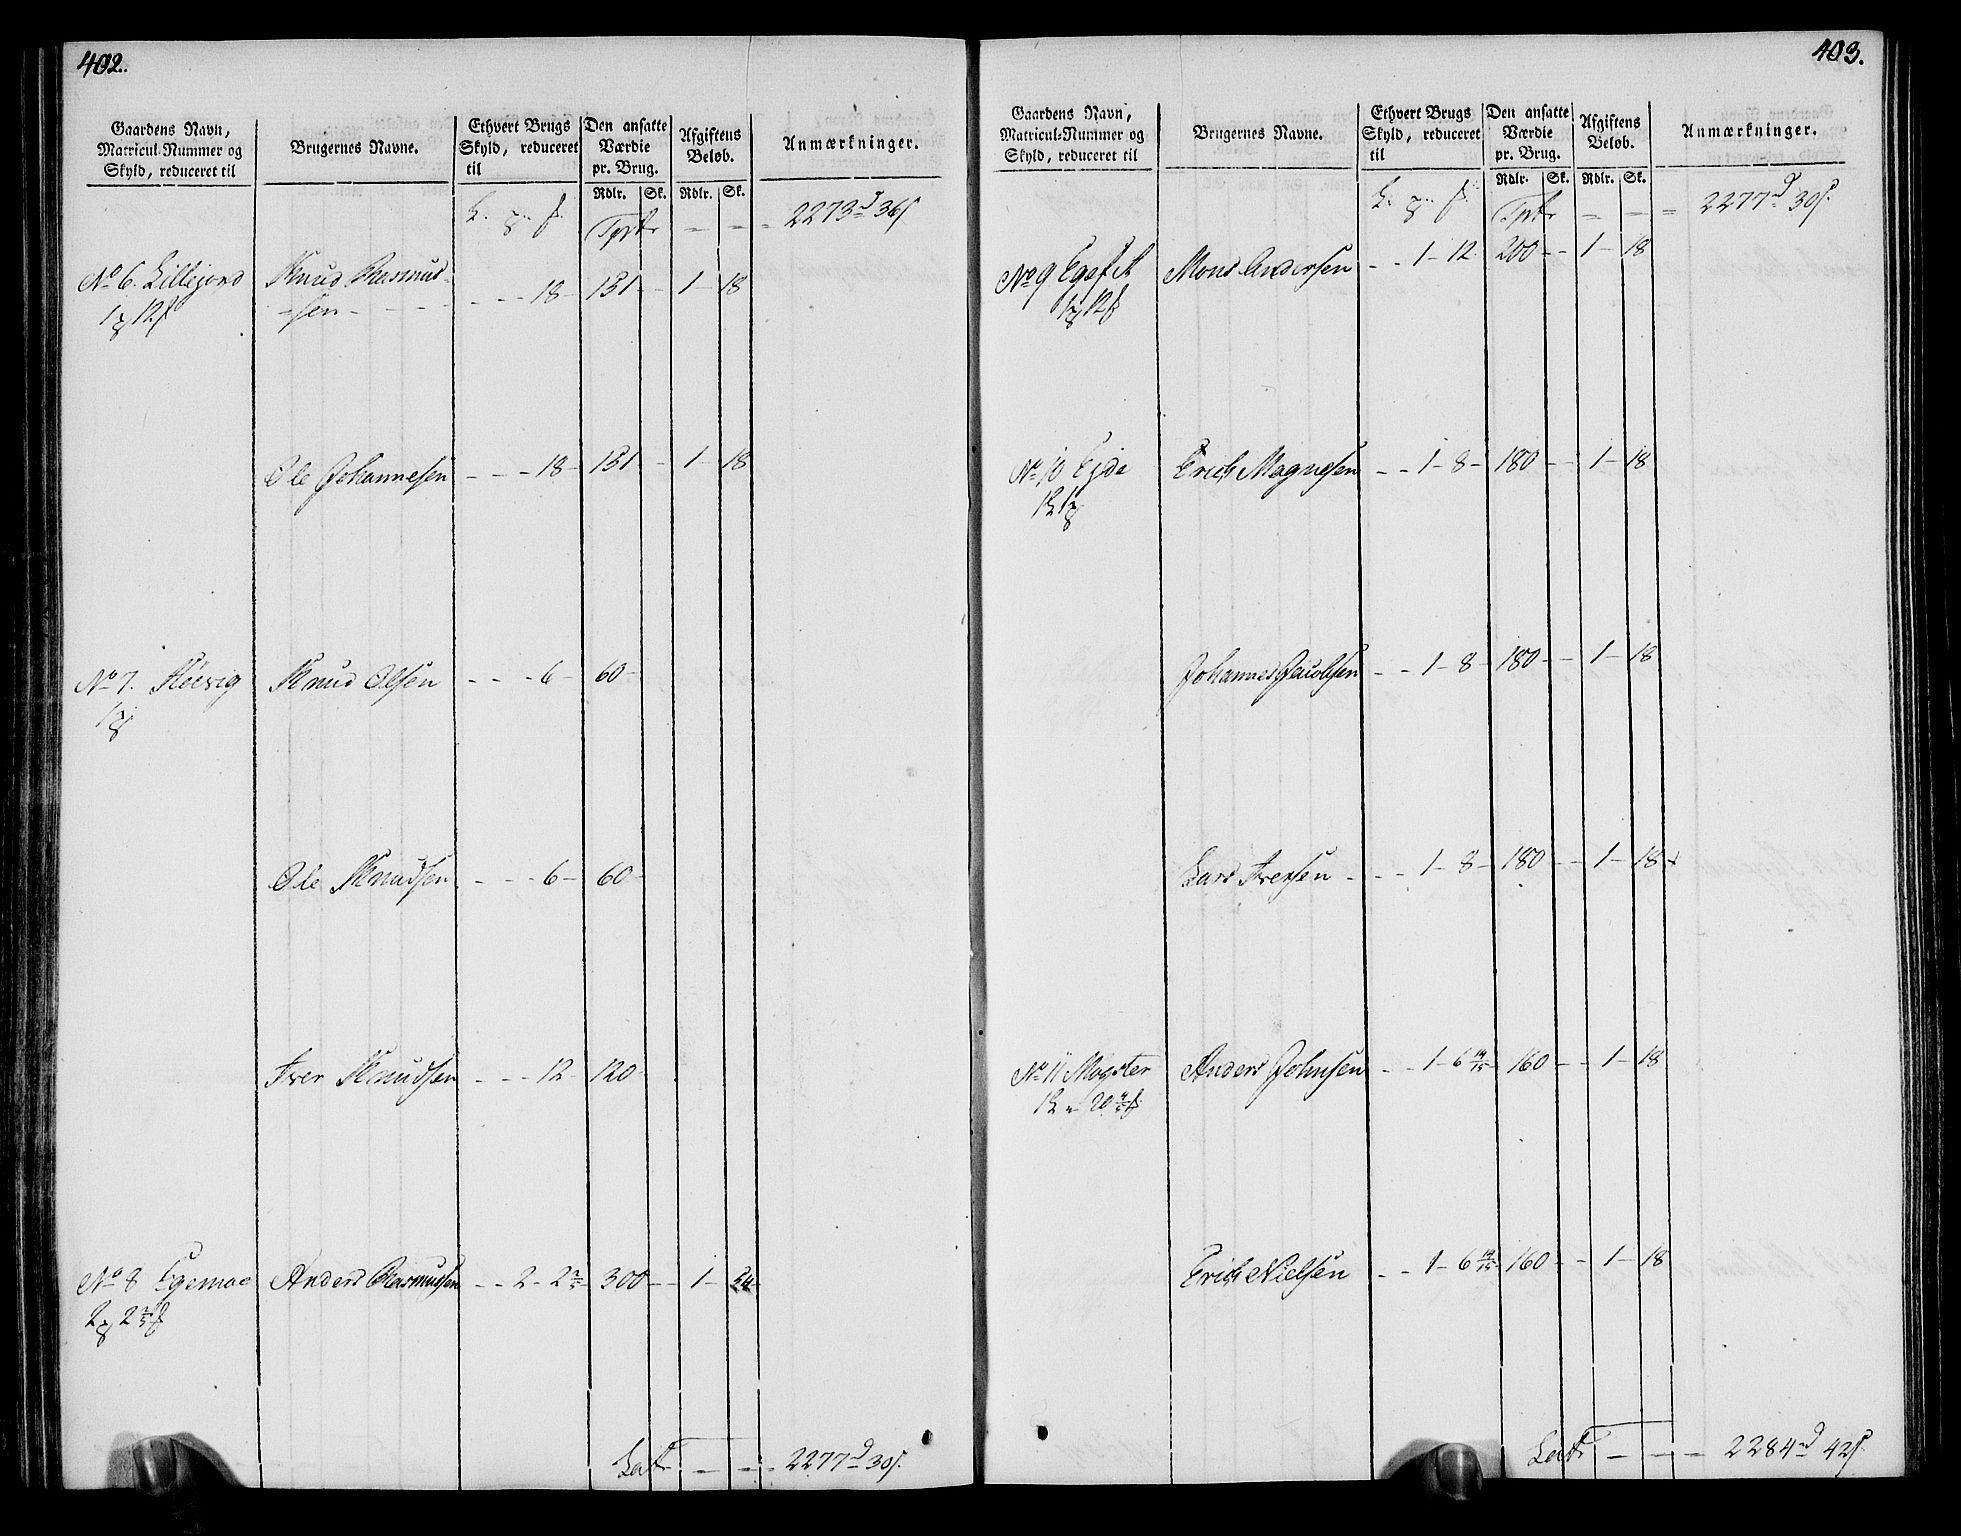 402.
Gaardens Navn, Matricul-Nummer og Skyld, reduceret til
Brugernes Navne.
Ethvert Brugs Skyld, reduceret til
Den ansatte Værdie pr. Brug.
Rdlr. Sk.
Afgiftens Beløb.
Rdlr. Sk.
Anmærkninger.
Tprt 2273 36
No 6. Lillejord Knud Rasmus- 18 151 1 18
1 12 sen
Ole Johannesen 18 151 1 18
No 7. Knud Olsen 6 60
1
Ole Knudsen 6 60
Iver Knudsen 12 120
No 8 Egemoe Anders Rasmussen 2 2 2/5 300 1 54
2 2 2/5
Lat 2277 30
403.
Gaardens Navn, Matricul-Nummer og Skyld, reduceret til
Brugernes Navne.
Ethvert Brugs Skyld, reduceret til
Den ansatte Værdie pr. Brug.
Rdlr. Sk.
Afgiftens Beløb.
Rdlr. Sk.
Anmærkninger.
Tprt 2277 30
No 9 Mons Andersen 1 12 200 1 18
1 12
No 10 Ejde Erich Magnesen 1 8 180 1 18
1 1
Johannes Jacobsen 1 8 180 1 18
Lars Iversen 1 8 180 1 18
No 11 Mogster Anders Johnsen 1 6 14/15 160 1 18
1 20 4/5
Erich Nielsen 1 6 14/15 160 1 18
Lat 2284 42